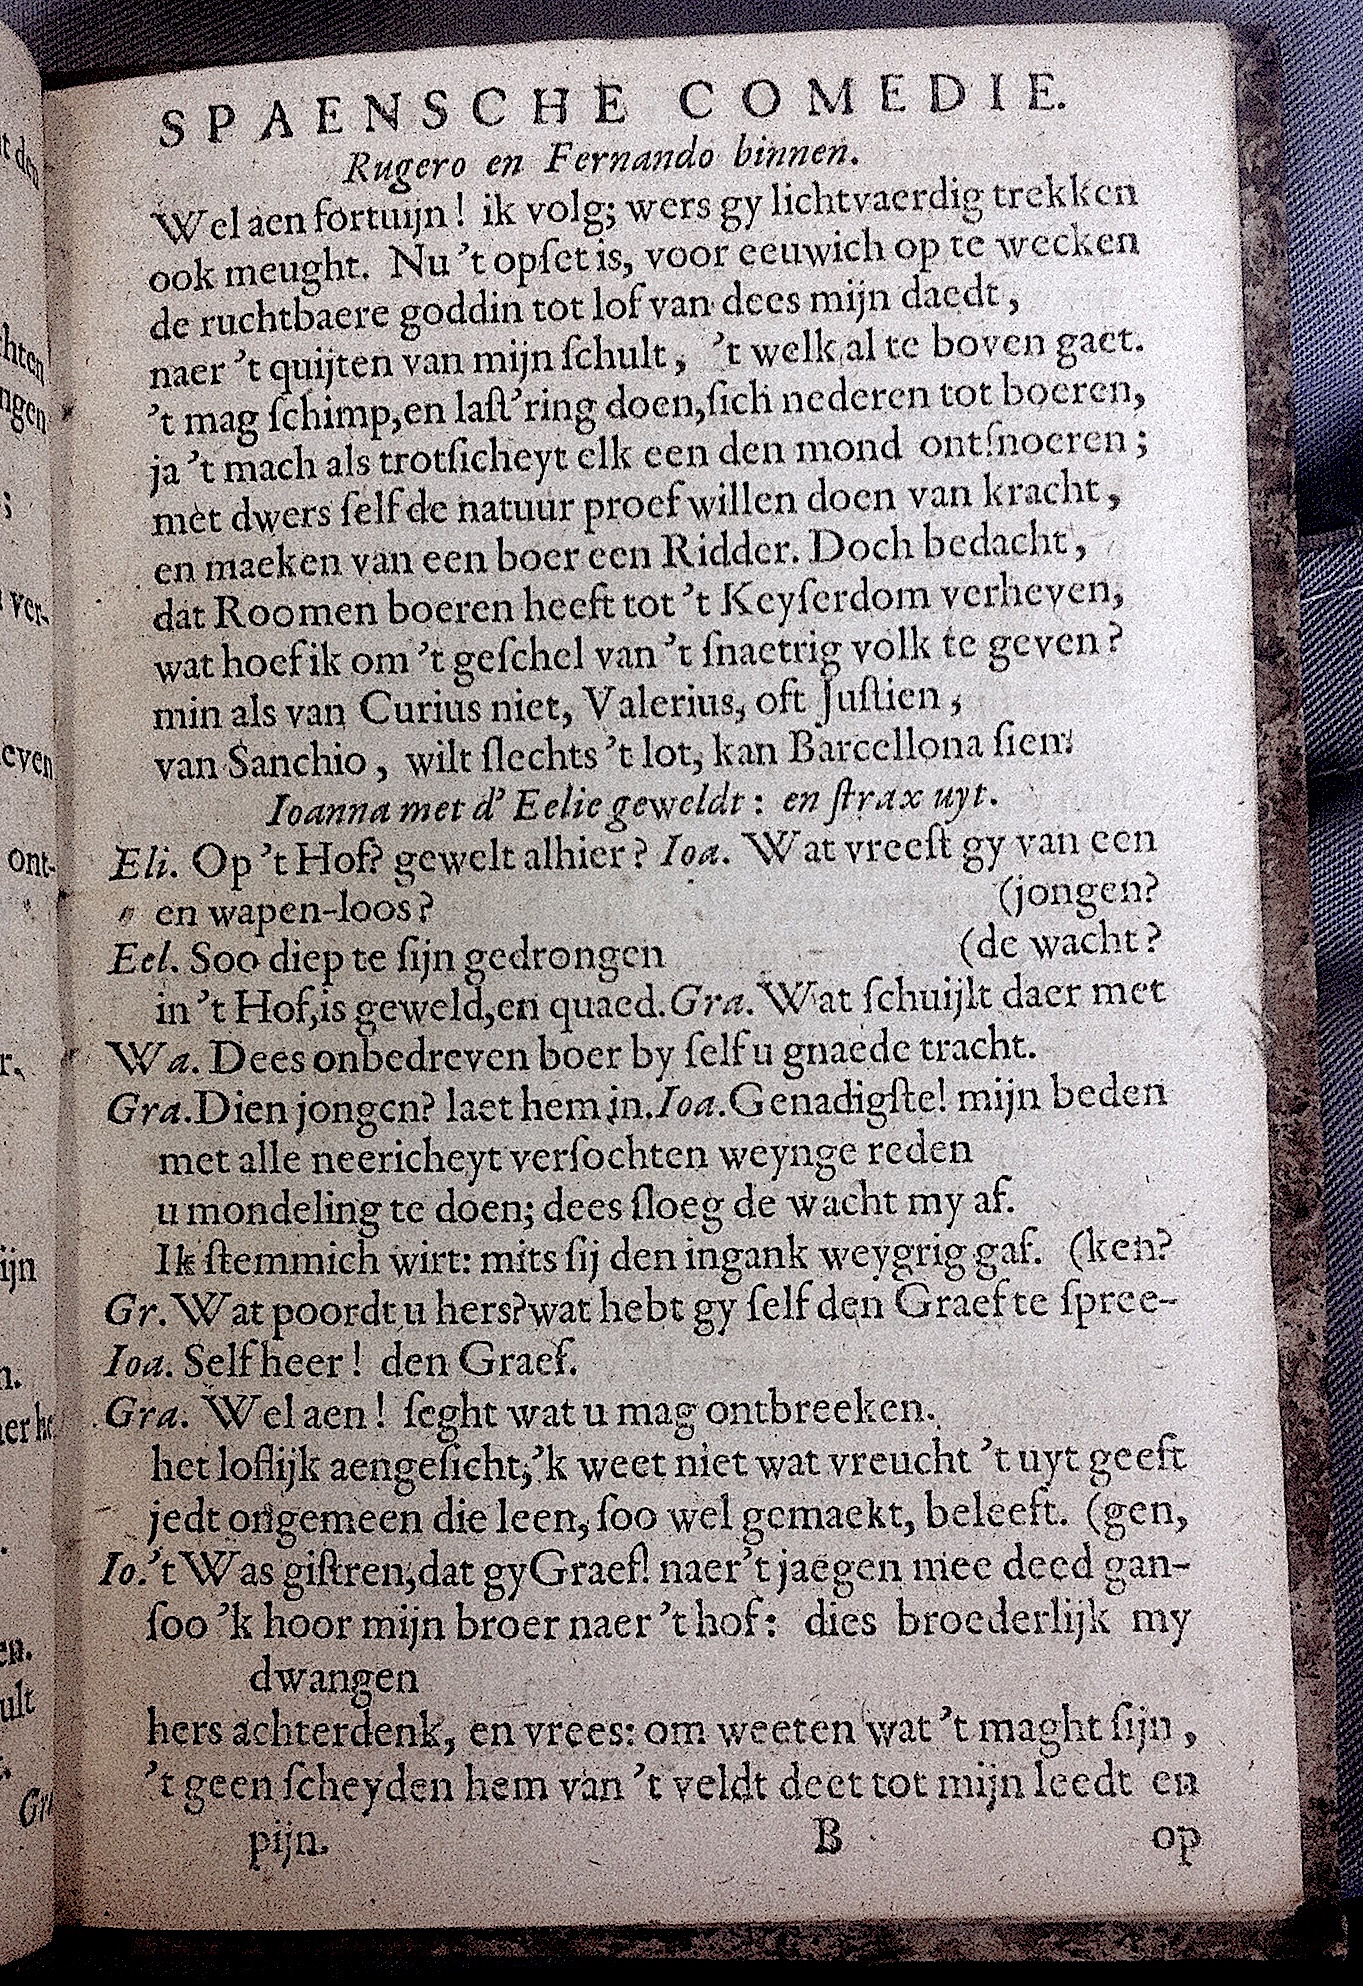 SPAENSCHE COMEDIE.
Rugero en Fernando binnen.
Wel aen fortuijn! ik volg; wers gy lichtvaerdig trekken
ook meught. Nu 't opſet is, voor eeuwich op te wecken
de ruchtbaere goddin tot lof van dees mijn daedt,
naer 't quijten van mijn ſchult, 't welk al te boven gaet.
't mag ſchimp, en laſt'ring doen, ſich nederen tot boeren,
ja 't mach als trotſicheyt elk een den mond ontſnoeren;
met dwers ſelf de natuur proef willen doen van kracht,
en maeken van een boer een Ridder. Doch bedacht,
dat Roomen boeren heeft tot 't Keyſerdom verheven,
wat hoef ik om 't geſchel van 't ſnaetrig volk te geven?
min als van Curius niet, Valerius, oft Juſtien,
van Sanchio, wilt ſlechts 't lot, kan Barcellona ſien.
Ioanna met d' Eelie geweldt: en ſtrax uyt.
Eli. Op 't Hof? gewelt alhier? Ioa. Wat vreeſt gy van een
en wapen-loos? (jongen?
Eel. Soo diep te ſijn gedrongen (de wacht?
in 't Hof, is geweld, en quaed. Gra. Wat ſchuijlt daer met
Wa. Dees onbedreven boer by ſelf u gnaede tracht.
Gra. Dien jongen? laet hem in. Ioa. Genadigſte! mijn beden
met alle neericheyt verſochten weynge reden
u mondeling te doen; dees ſloeg de wacht my af.
Ik ſtemmich wirt: mits ſij den ingank weygrig gaf. (ken?
Gr. Wat poordt u hers? wat hebt gy ſelf den Graef te ſpree-
Ioa. Self heer! den Graef.
Gra. Wel aen! ſeght wat u mag ontbreeken.
het loflijk aengeſicht, 'k weet niet wat vreucht 't uyt geeft
jedt ongemeen die leen, ſoo wel gemaekt, beleeft. (gen,
Io. 't Was giſtren, dat gy Graef! naer 't jaegen mee deed gan-
ſoo 'k hoor mijn broer naer 't hof: dies broederlijk my
dwangen
hers achterdenk, en vrees: om weeten wat 't maght ſijn,
't geen ſcheyden hem van 't veldt deet tot mijn leedt en
pijn. B op